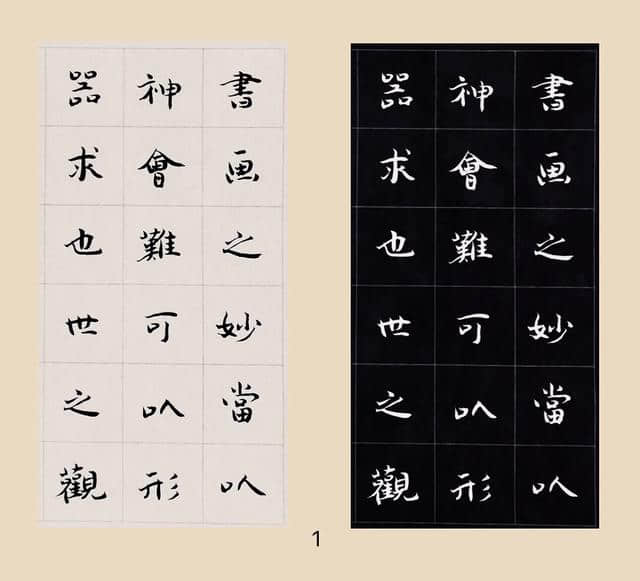 書画之妙當以
神會難可以形
器求也世之觀
書画之妙當以
神會難可以形
器求也世之觀
1